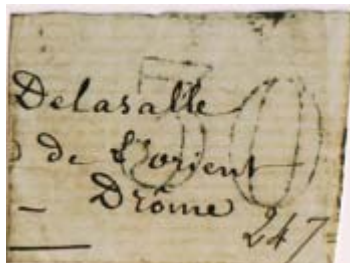 Delasalle
de l'orient
Drôme
247
30